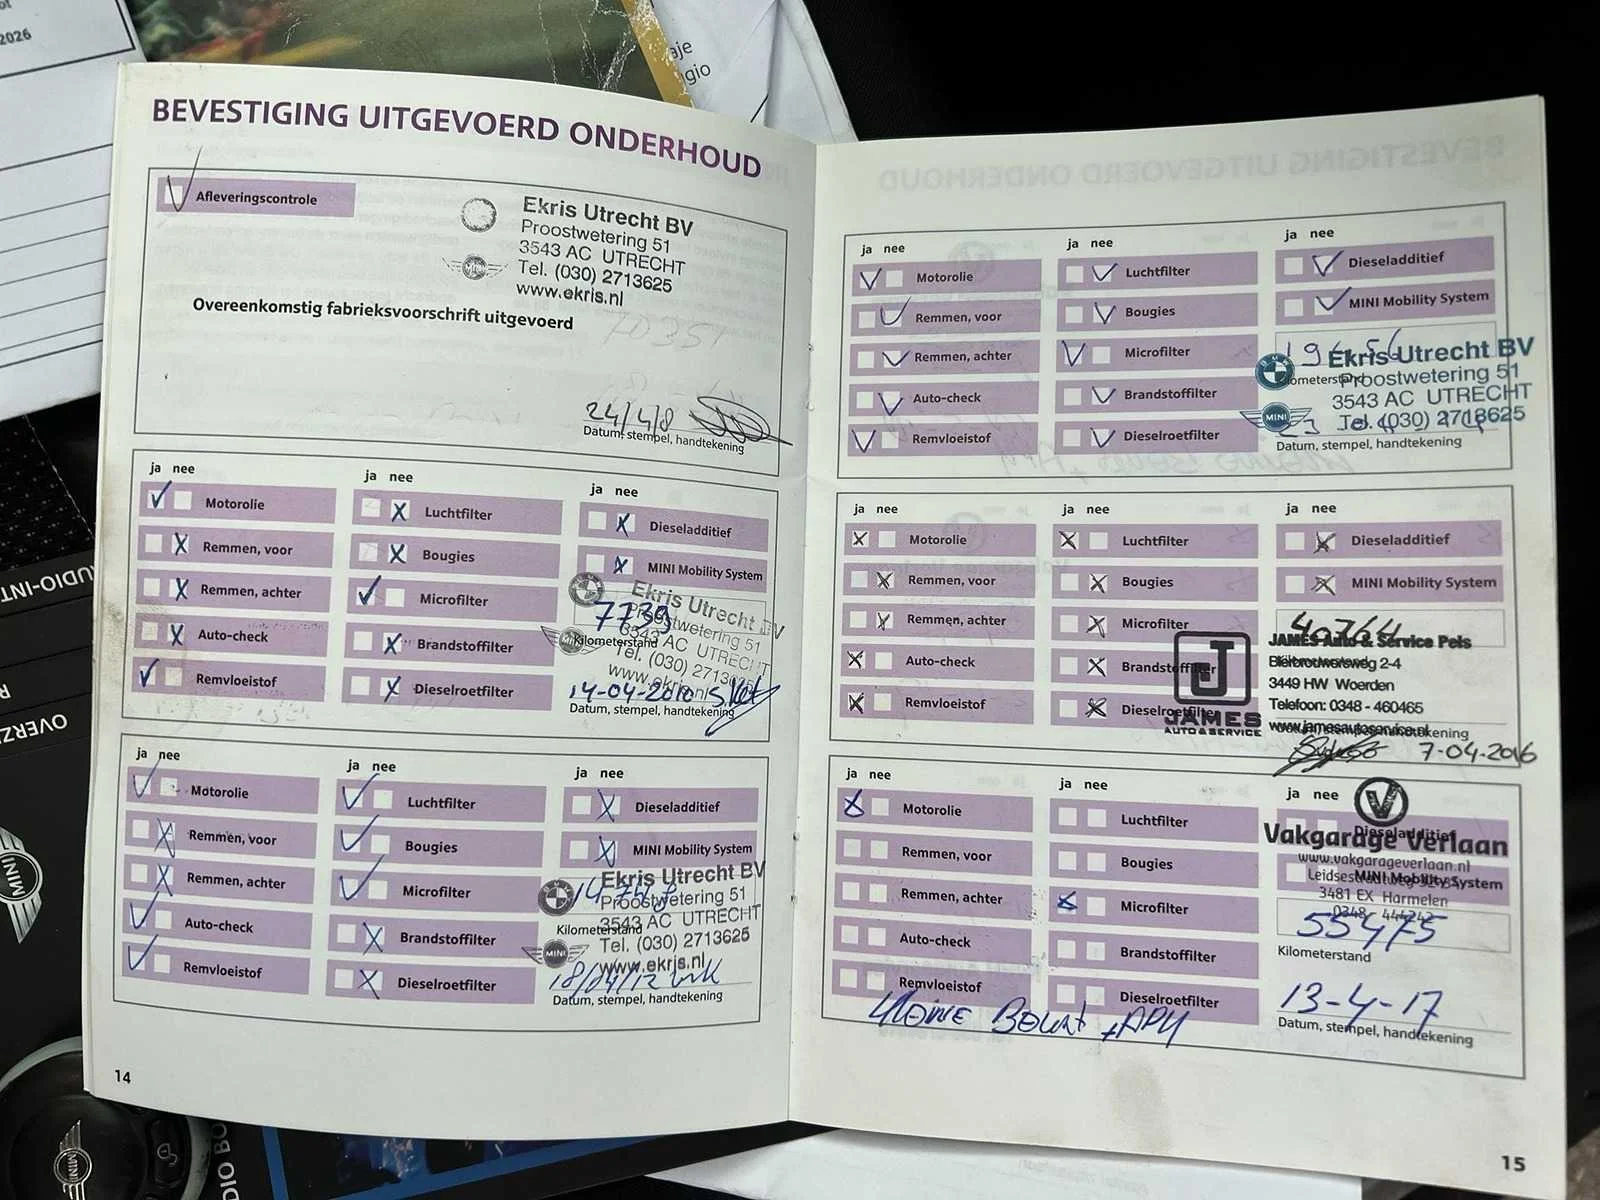 2026
aje
gio
BEVESTIGING UITGEVOERD ONDERHOUD
Afleveringscontrole
Ekris Utrecht BV
Proostwetering 51
3543 AC UTRECHT
Tel. (030) 2713625
www.ekris.nl
MINI
Overeenkomstig fabrieksvoorschrift uitgevoerd
24/4/8
Datum, stempel, handtekening
ja nee
Motorolie
Remmen, voor
Remmen, achter
Auto-check
Remvloeistof
ja nee
Luchtfilter
Bougies
Microfilter
Brandstoffilter
Dieselroetfilter
ja nee
Dieseladditief
MINI Mobility System
Ekris Utrecht BV
7739
Proostwetering 51
3543 AC UTRECHT
Kilometerstand
Tel. (030) 2713625
www.ekris.nl
14-04-2010
Datum, stempel, handtekening
ja nee
Motorolie
Remmen, voor
Remmen, achter
Auto-check
Remvloeistof
ja nee
Luchtfilter
Bougies
Microfilter
Brandstoffilter
Dieselroetfilter
ja nee
Dieseladditief
MINI Mobility System
Ekris Utrecht BV
Proostwetering 51
3543 AC UTRECHT
Kilometerstand
Tel. (030) 2713625
MINI
www.ekris.nl
18/04/12
Datum, stempel, handtekening
14
ja nee
Motorolie
Remmen, voor
Remmen, achter
Auto-check
Remvloeistof
ja nee
Luchtfilter
Bougies
Microfilter
Brandstoffilter
Dieselroetfilter
ja nee
Dieseladditief
MINI Mobility System
Ekris Utrecht BV
Kilometerstand
Proostwetering 51
3543 AC UTRECHT
MINI
Tel. (030) 2713625
Datum, stempel, handtekening
ja nee
Motorolie
Remmen, voor
Remmen, achter
Auto-check
Remvloeistof
ja nee
Luchtfilter
Bougies
Microfilter
Brandstoffilter
Dieselroetfilter
ja nee
Dieseladditief
MINI Mobility System
40764
J
JAMES
AUTO & SERVICE
JAMES Auto & Service Pels
2-4
3449 HW Woerden
Telefoon: 0348 - 460465
www.jamesautoservice.nl
7-04-2016
ja nee
Motorolie
Remmen, voor
Remmen, achter
Auto-check
Remvloeistof
ja nee
Luchtfilter
Bougies
Microfilter
Brandstoffilter
Dieselroetfilter
ja nee
Dieseladditief
MINI Mobility System
V
Vakgarage Verlaan
www.vakgarageverlaan.nl
3481 EX Harmelen
55475
Kilometerstand
13-4-17
Datum, stempel, handtekening
15
MINI
MINI